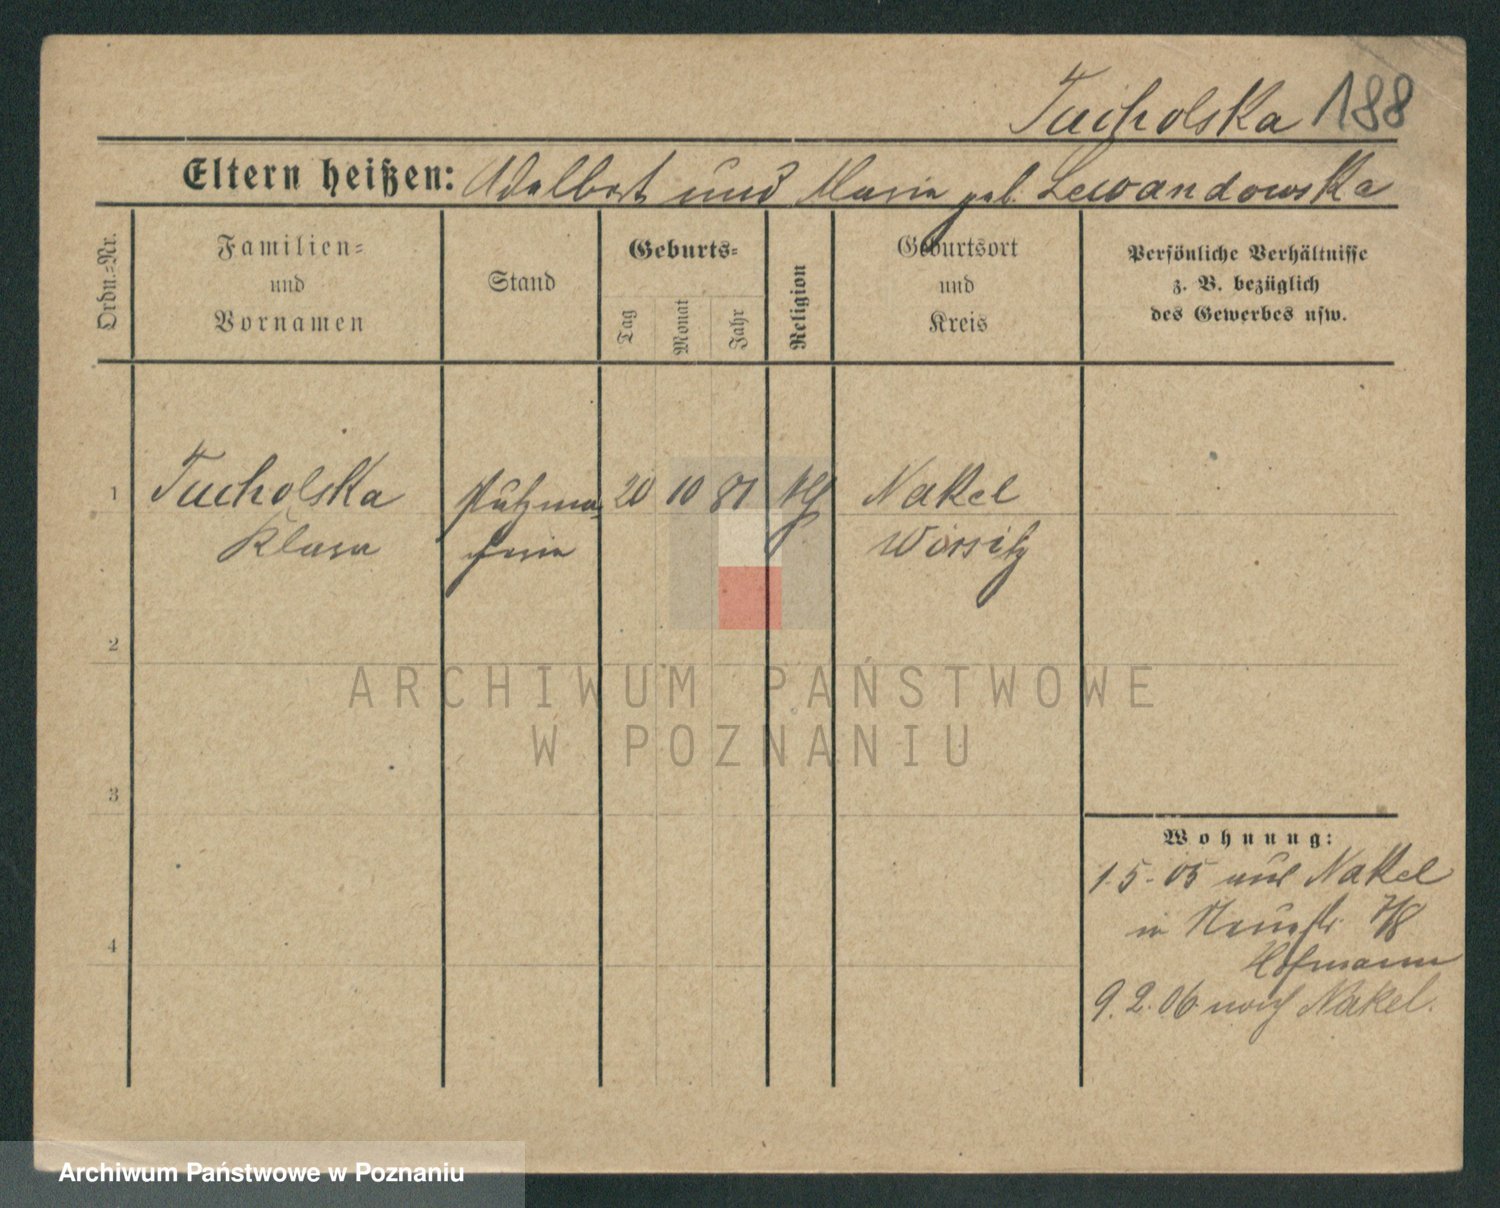 Tucholska 188
Eltern heißen: Adalbert und Maria geb. Lewandowska
Ordn.-Nr.
Familien-
und
Vornamen
Stand
Geburts-
Tag
Monat
Jahr
Religion
Geburtsort
und
Kreis
Persönliche Verhältnisse
z. B. bezüglich
des Gewerbes usw.
1 Tucholska Putzma- 20 10 81 Nakel
Klara cherin Wirsitz
2
ARCHIWUM PAŃSTWOWE
W POZNANIU
3
Wohnung:
1.5.05 aus Nakel
in Neustr. 7/8
4
Hofmann
9.2.06 nach Nakel.
Archiwum Państwowe w Poznaniu